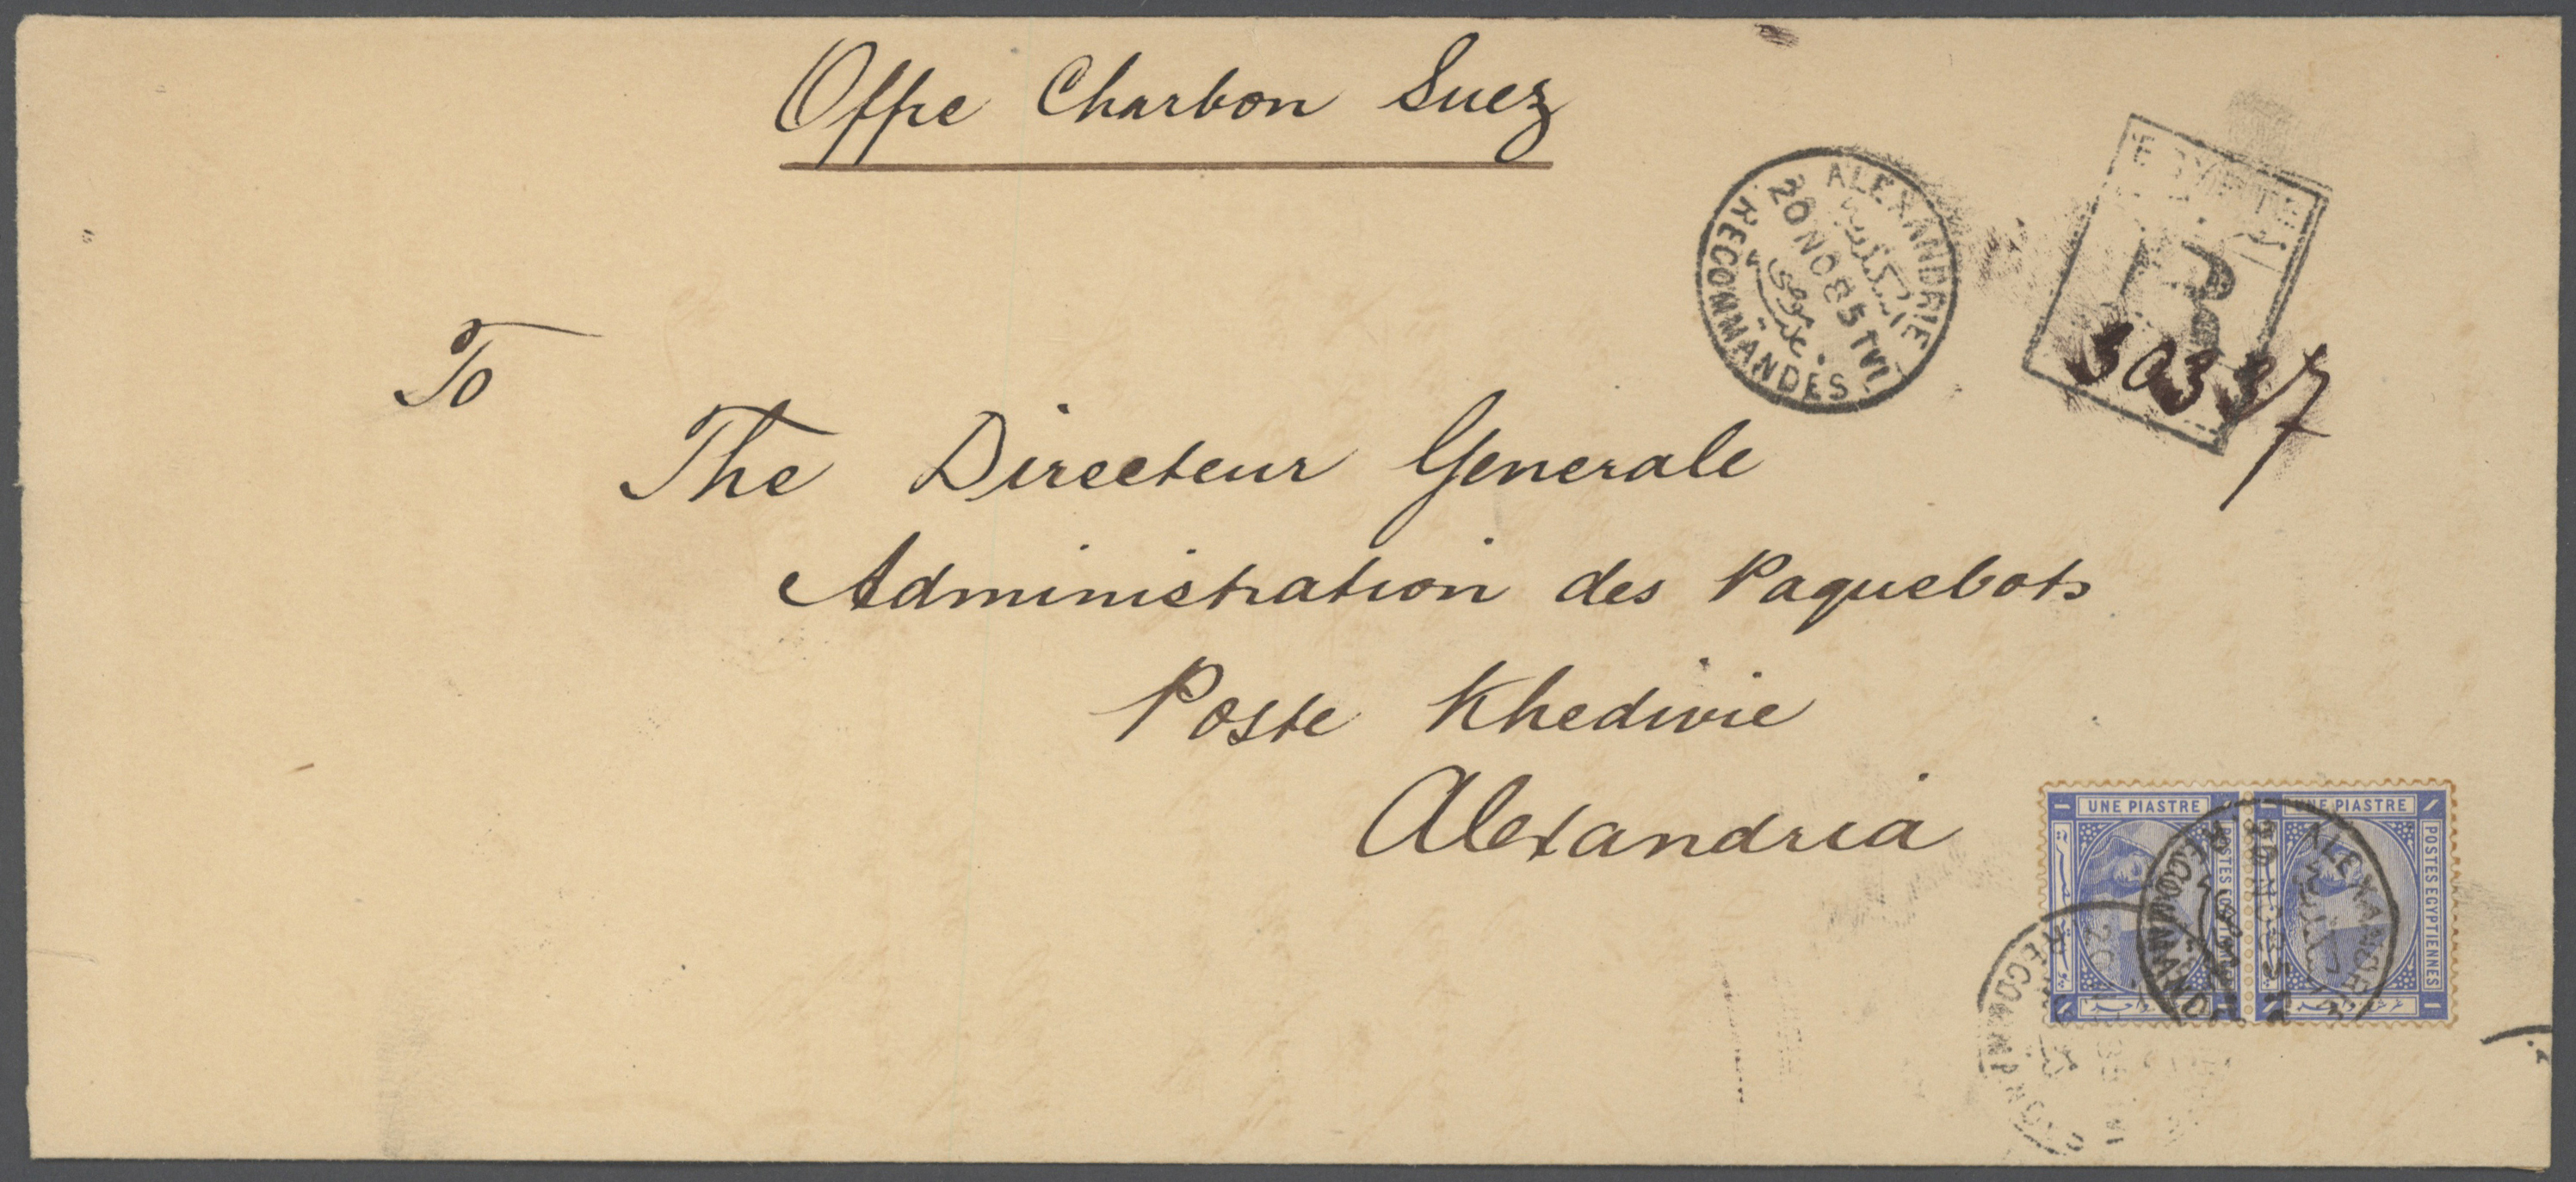 Offre Charbon Suez
ALEXANDRIE
20 NO 85 TVI
RECOMMANDÉS
EGYPTE
R
30337
To
The Directeur Generale
Administration des Paquebots
Poste Khedivie
Alexandria
UNE PIASTRE
POSTES EGYPTIENNES
UNE PIASTRE
POSTES EGYPTIENNES
ALEXANDRIE